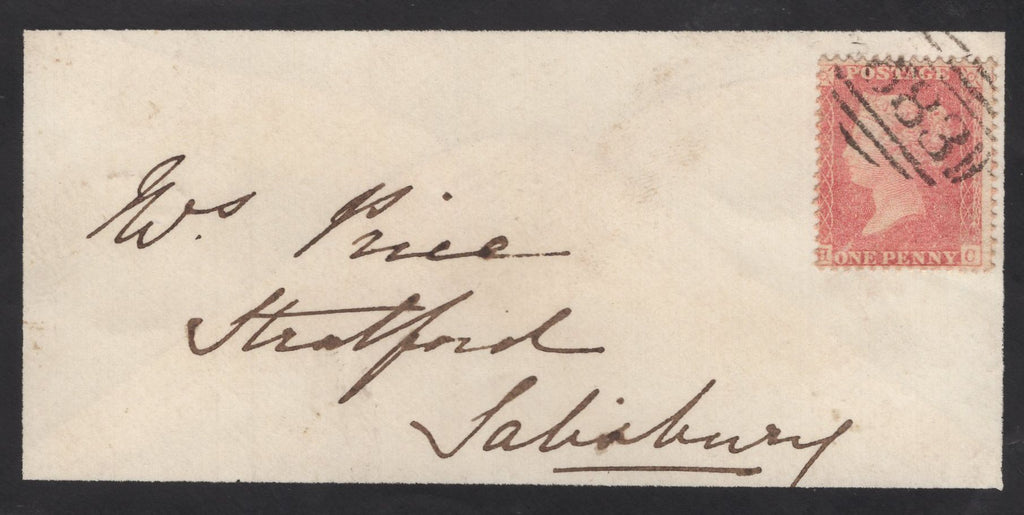 POSTAGE
83
I ONE PENNY C
Mrs. Price
Stratford
Salisbury